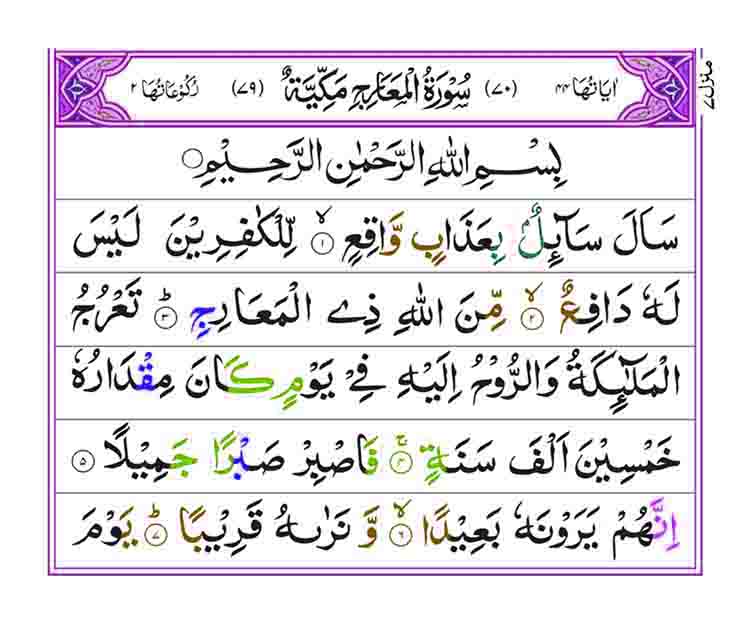 اٰيَاتُهَا ٤٤ (٧٠) سُوْرَةُ الْمَعَارِجِ مَكِّيَّةٌ (٧٩) رُكُوْعَاتُهَا ٢
منزل ٧
بِسْمِ اللّٰهِ الرَّحْمٰنِ الرَّحِيْمِ ۝
سَاَلَ سَآئِلٌۢ بِعَذَابٍ وَّاقِعٍ ۙ‏﴿۱﴾ لِّلْكٰفِرِيْنَ لَيْسَ
لَهٗ دَافِعٌ ۙ‏﴿۲﴾ مِّنَ اللّٰهِ ذِى الْمَعَارِجِ ؕ‏﴿۳﴾ تَعْرُجُ
الْمَلٰٓئِكَةُ وَالرُّوْحُ اِلَيْهِ فِىْ يَوْمٍ كَانَ مِقْدَارُهٗ
خَمْسِيْنَ اَلْفَ سَنَةٍ ۚ‏﴿۴﴾ فَاصْبِرْ صَبْرًا جَمِيْلًا ‏﴿۵﴾
اِنَّهُمْ يَرَوْنَهٗ بَعِيْدًا ۙ‏﴿۶﴾ وَّ نَرٰٮهُ قَرِيْبًا ؕ‏﴿۷﴾ يَوْمَ